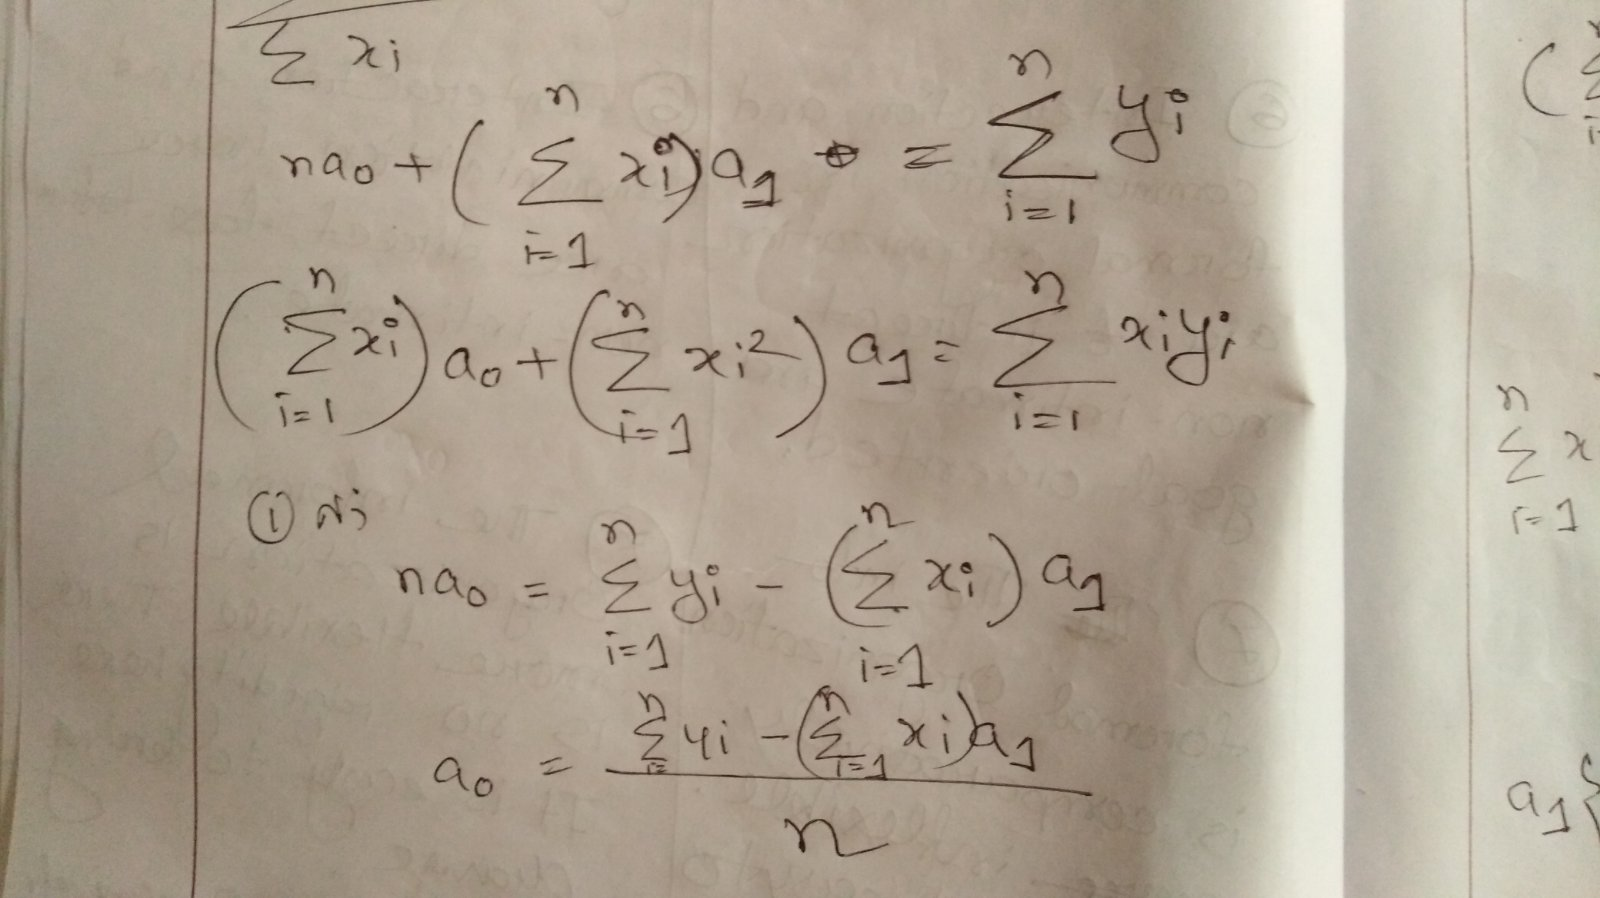 ∑ xi
na₀ + (∑_{i=1}^{n} xi) a₁ = ∑_{i=1}^{n} yi
(∑_{i=1}^{n} xi) a₀ + (∑_{i=1}^{n} xi²) a₁ = ∑_{i=1}^{n} xiyi
①
na₀ = ∑_{i=1}^{n} yi − (∑_{i=1}^{n} xi) a₁
a₀ = (∑_{i=}^{n} yi − (∑_{i=1}^{n} xi) a₁) / n
n
∑ x
i=1
a₁